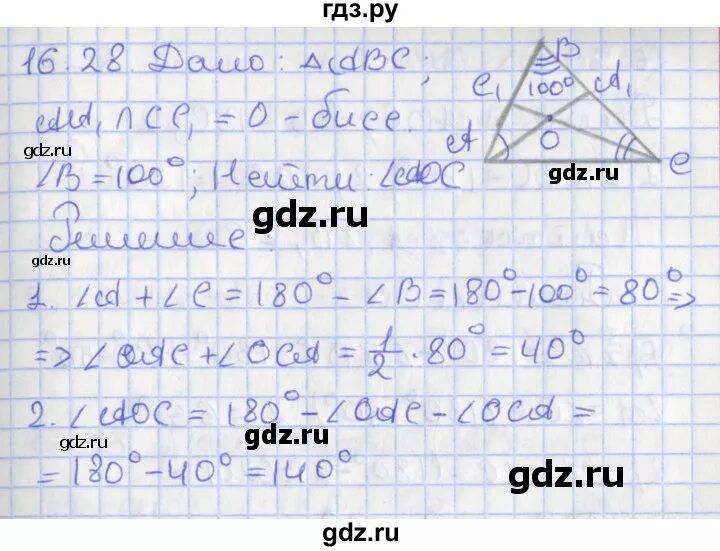 гдз.ру
16.28. Дано: △ABC;
AA₁ ∩ CC₁ = O - бисс.
∠B = 100°; Найти: ∠AOC
Решение:
1. ∠A + ∠C = 180° - ∠B = 180° - 100° = 80° =>
=> ∠OAC + ∠OCA = 1/2 · 80° = 40°
2. ∠AOC = 180° - ∠OAC - ∠OCA =
= 180° - 40° = 140°
B
C₁
100°
A₁
A
O
C
gdz.ru
gdz.ru
gdz.ru
gdz.ru
gdz.ru
gdz.ru
gdz.ru
gdz.ru